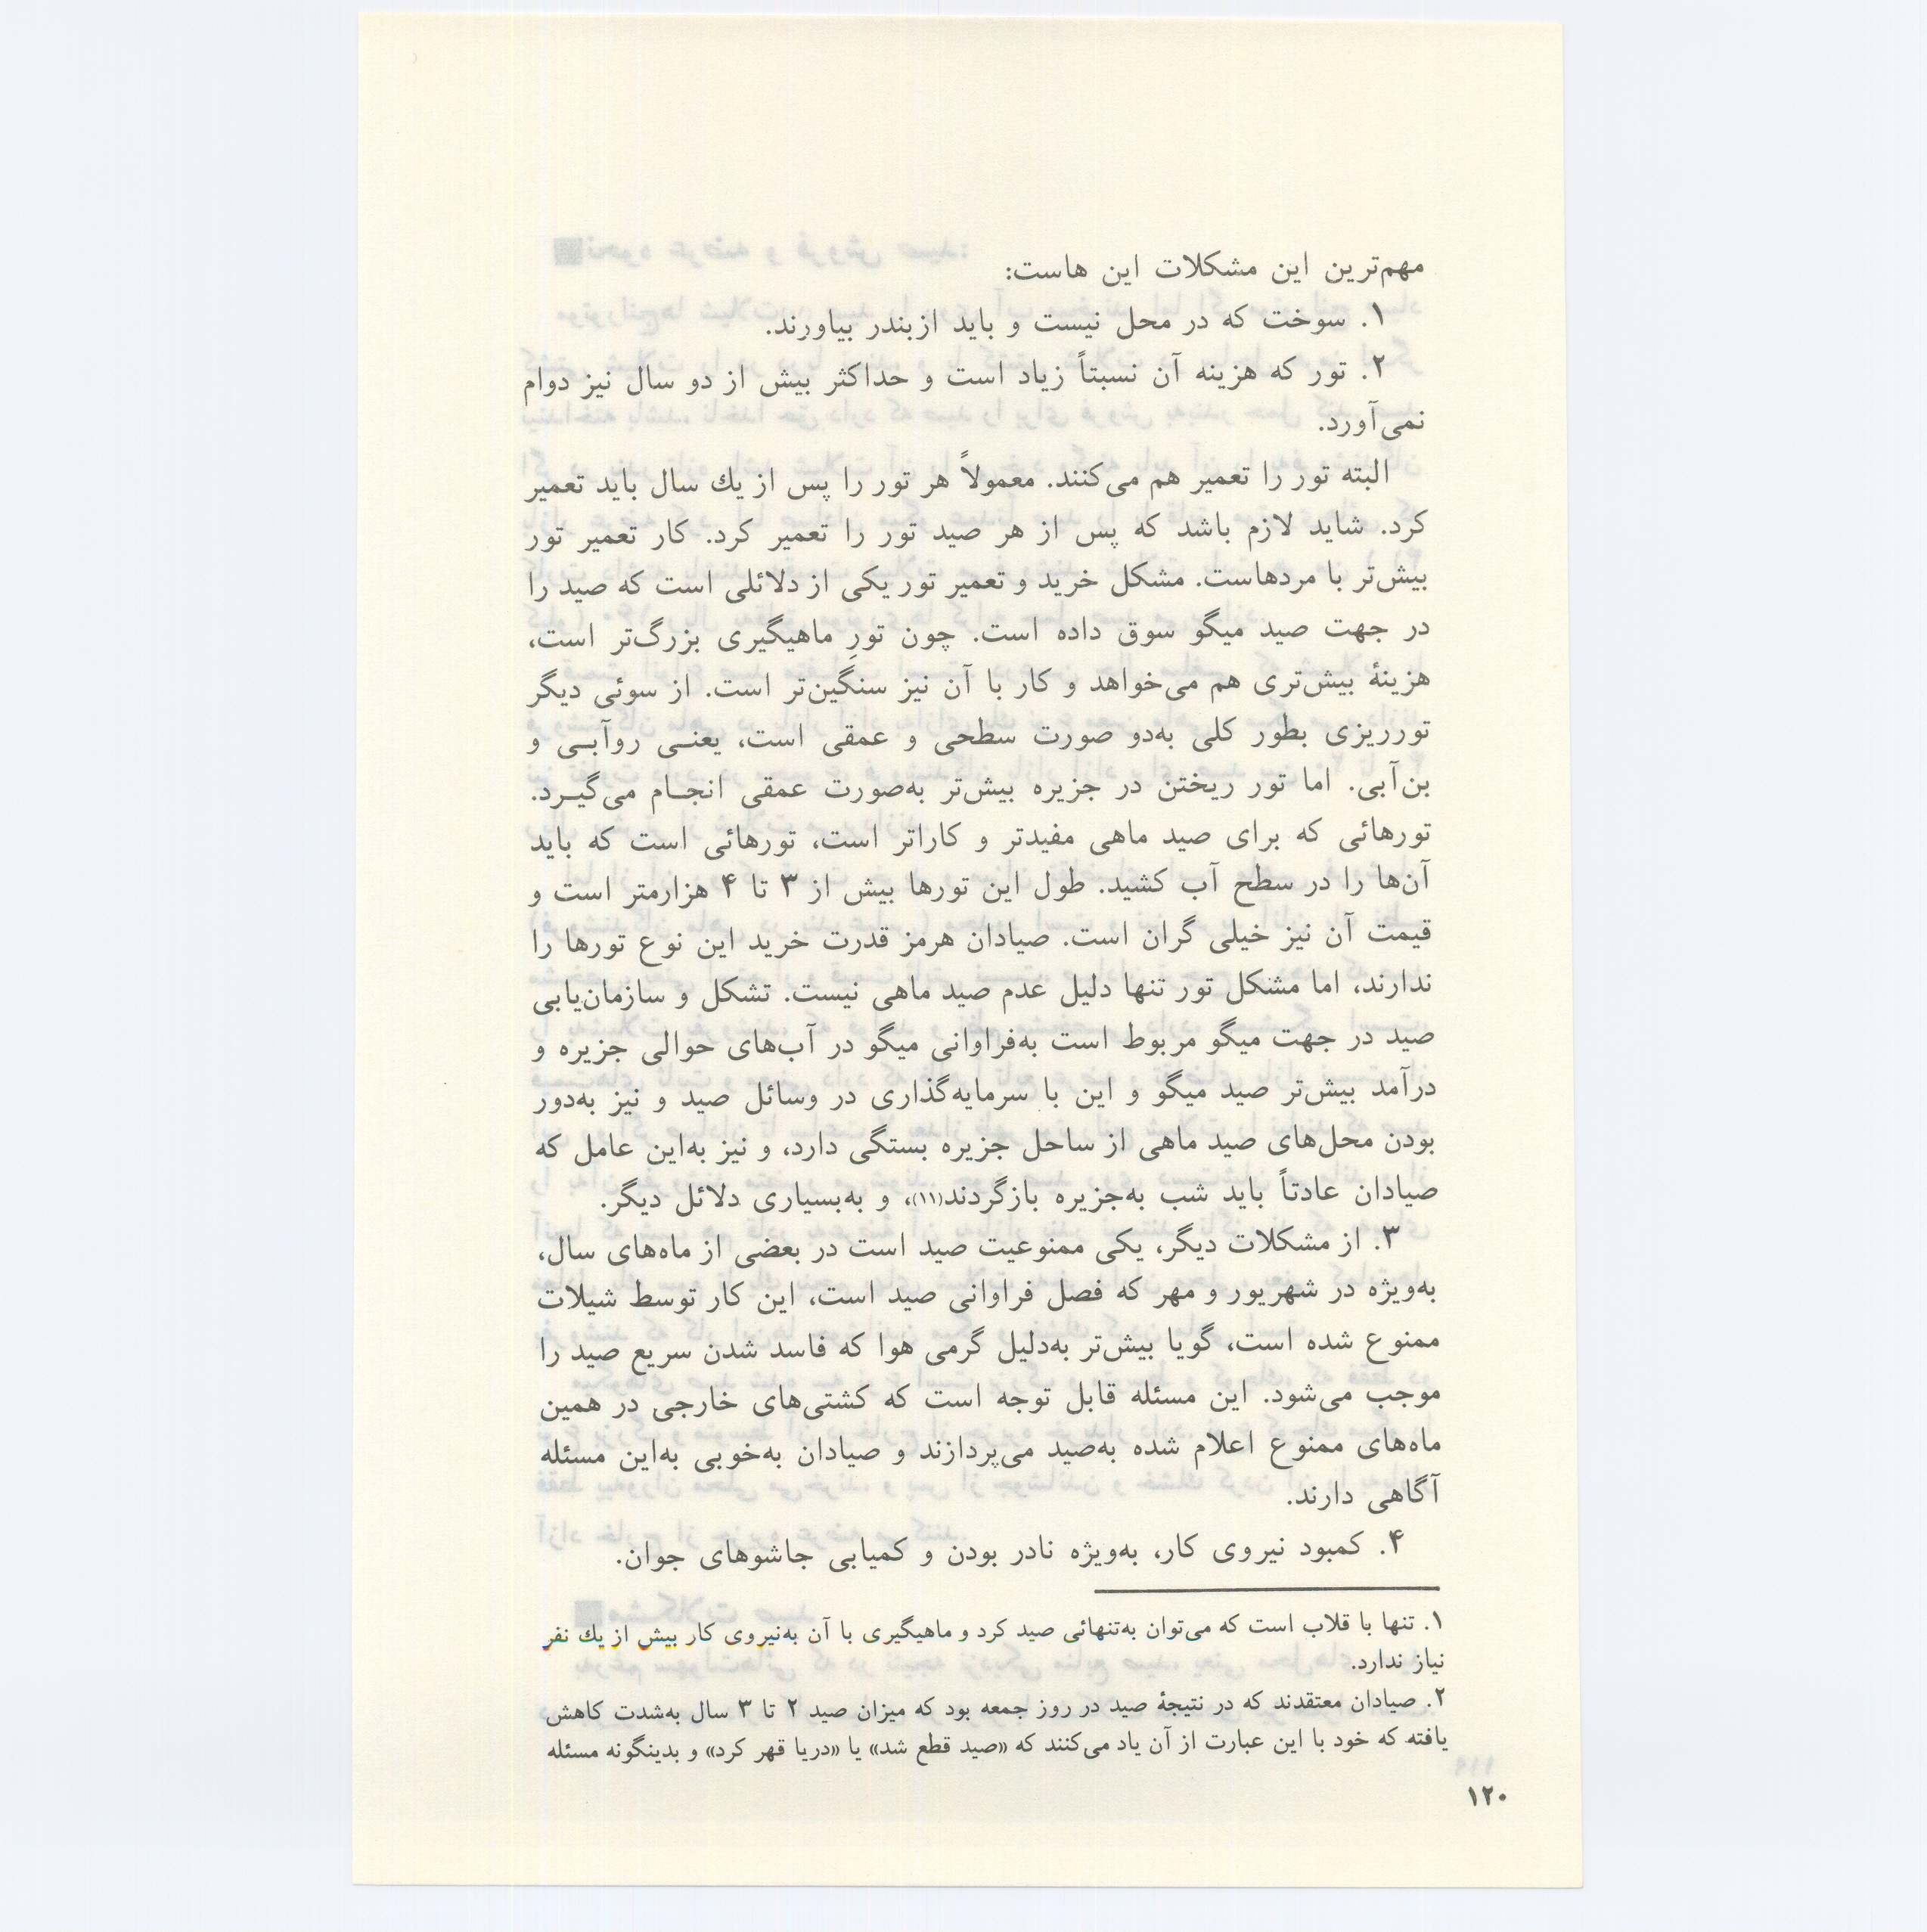 مهم‌ترین این مشکلات این هاست:
۱. سوخت که در محل نیست و باید ازبندر بیاورند.
۲. تور که هزینه آن نسبتاً زیاد است و حداکثر بیش از دو سال نیز دوام
نمی‌آورد.
البته تور را تعمیر هم می‌کنند. معمولاً هر تور را پس از یك سال باید تعمیر
کرد. شاید لازم باشد که پس از هر صید تور را تعمیر کرد. کار تعمیر تور
بیش‌تر با مردهاست. مشکل خرید و تعمیر تور یکی از دلائلی است که صید را
در جهت صید میگو سوق داده است. چون تورِ ماهیگیری بزرگ‌تر است،
هزینهٔ بیش‌تری هم می‌خواهد و کار با آن نیز سنگین‌تر است. از سوئی دیگر
تورریزی بطور کلی به‌دو صورت سطحی و عمقی است، یعنی روآبی و
بن‌آبی. اما تور ریختن در جزیره بیش‌تر به‌صورت عمقی انجام می‌گیرد.
تورهائی که برای صید ماهی مفیدتر و کاراتر است، تورهائی است که باید
آن‌ها را در سطح آب کشید. طول این تورها بیش از ۳ تا ۴ هزارمتر است و
قیمت آن نیز خیلی گران است. صیادان هرمز قدرت خرید این نوع تورها را
ندارند، اما مشکل تور تنها دلیل عدم صید ماهی نیست. تشکل و سازمان‌یابی
صید در جهت میگو مربوط است به‌فراوانی میگو در آب‌های حوالی جزیره و
درآمد بیش‌تر صید میگو و این با سرمایه‌گذاری در وسائل صید و نیز به‌دور
بودن محل‌های صید ماهی از ساحل جزیره بستگی دارد، و نیز به‌این عامل که
صیادان عادتاً باید شب به‌جزیره بازگردند(۱۱)، و به‌بسیاری دلائل دیگر.
۳. از مشکلات دیگر، یکی ممنوعیت صید است در بعضی از ماه‌های سال،
به‌ویژه در شهریور و مهر که فصل فراوانی صید است، این کار توسط شیلات
ممنوع شده است، گویا بیش‌تر به‌دلیل گرمی هوا که فاسد شدن سریع صید را
موجب می‌شود. این مسئله قابل توجه است که کشتی‌های خارجی در همین
ماه‌های ممنوع اعلام شده به‌صید می‌پردازند و صیادان به‌خوبی به‌این مسئله
آگاهی دارند.
۴. کمبود نیروی کار، به‌ویژه نادر بودن و کمیابی جاشوهای جوان.
۱. تنها با قلاب است که می‌توان به‌تنهائی صید کرد و ماهیگیری با آن به‌نیروی کار بیش از یك نفر
نیاز ندارد.
۲. صیادان معتقدند که در نتیجهٔ صید در روز جمعه بود که میزان صید ۲ تا ۳ سال به‌شدت کاهش
یافته که خود با این عبارت از آن یاد می‌کنند که «صید قطع شد» یا «دریا قهر کرد» و بدینگونه مسئله
۱۲۰